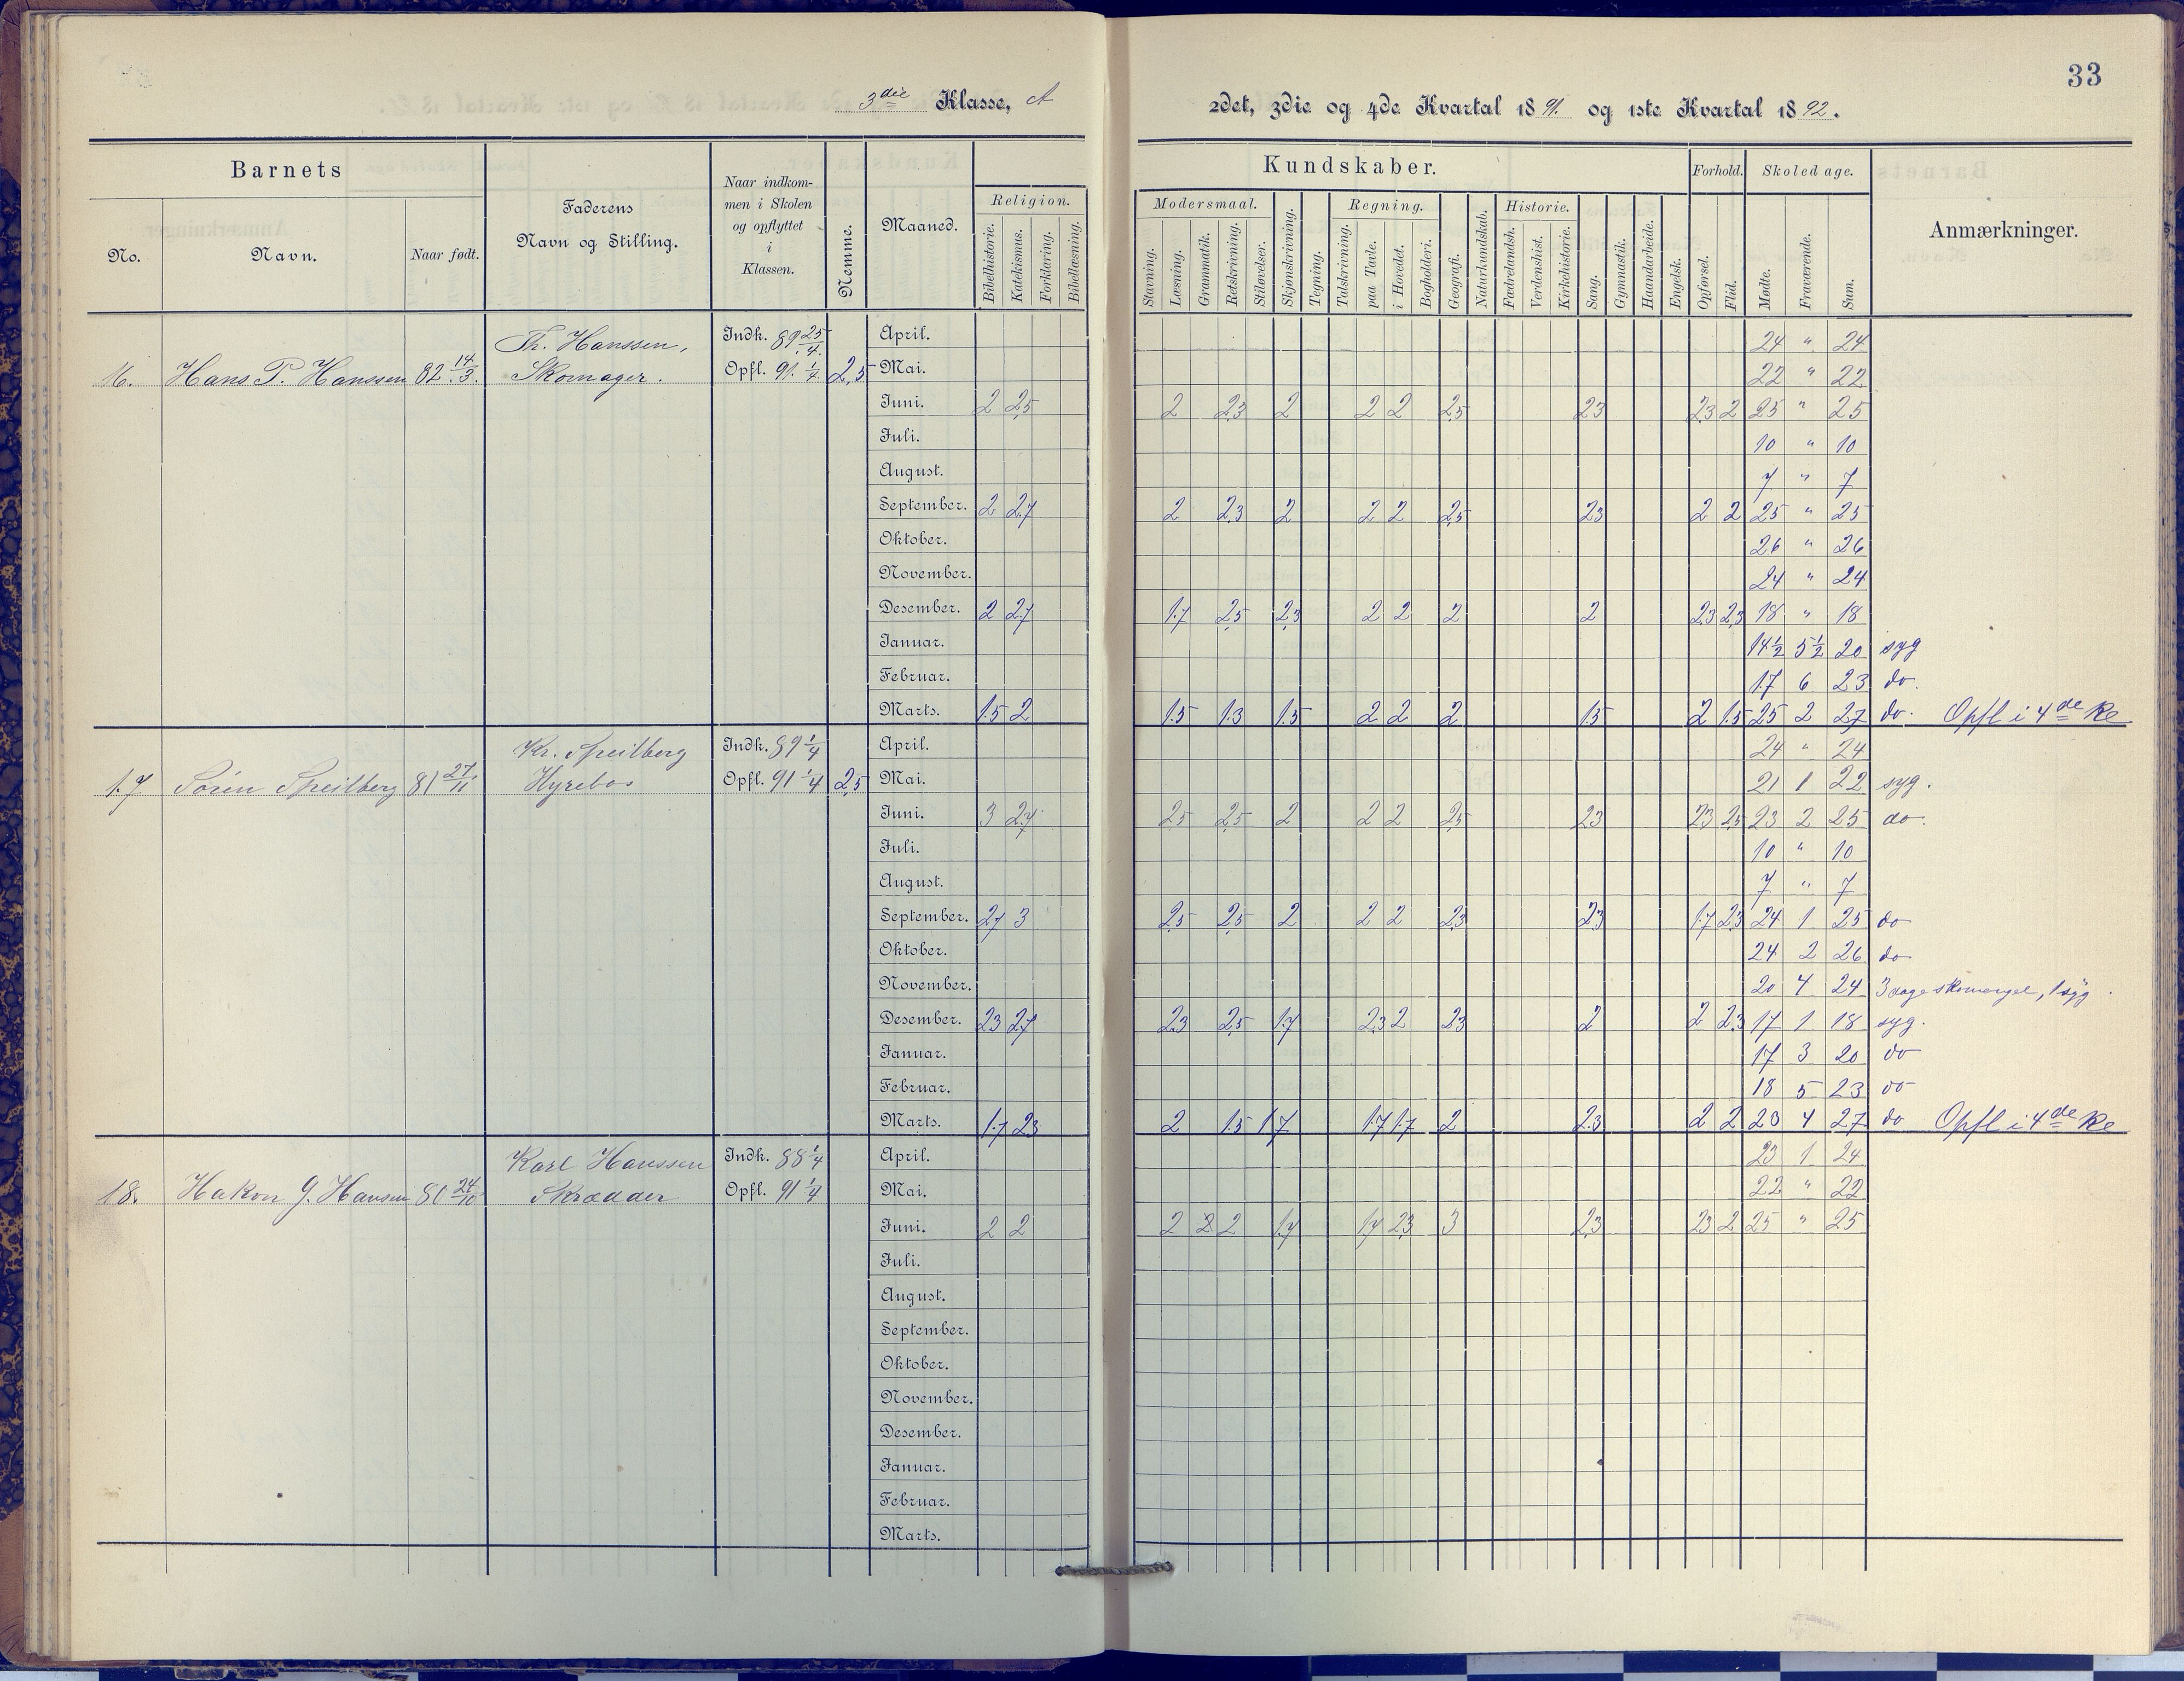 33
3die Klasse, A
2det, 3die og 4de Kvartal 1891. og 1ste Kvartal 1892.
Barnets
No.
Navn.
Naar født.
Faderens
Navn og Stilling.
Naar indkom-
men i Skolen
og opflyttet
i
Klassen.
Nemme.
Maaned.
Religion.
Bibelhistorie.
Katekismus.
Forklaring.
Bibellæsning.
Kundskaber.
Modersmaal.
Stavning.
Læsning.
Grammatik.
Retskrivning.
Stiløvelser.
Skjønskrivning.
Tegning.
Regning.
Talskrivning.
paa Tavle.
i Hovedet.
Bogholderi.
Geografi.
Naturkundskab.
Historie.
Fædrelandsh.
Verdenshist.
Kirkehistorie.
Sang.
Gymnastik.
Haandarbeide.
Engelsk.
Forhold.
Opførsel.
Flid.
Skoledage.
Mødte.
Fraværende.
Sum.
Anmærkninger.
Th. Hanssen, Indk. 89 25/4. April. 24 " 24
16. Hans P. Hanssen 82 14/3. Skomager. Opfl. 91. 1/4 2,5 Mai. 22 " 22
Juni. 2 2,5 2 2,3 2 2 2 2,5 2,3 2,3 2 25 " 25
Juli. 10 " 10
August. 7 " 7
September. 2 2,7 2 2,3 2 2 2 2,5 2,3 2 2 25 " 25
Oktober. 26 " 26
November. 24 " 24
Desember. 2 2,7 1,7 2,5 2,3 2 2 2 2 2,3 2,3 18 " 18
Januar. 14 1/2 5 1/2 20 syg
Februar. 17 6 23 do.
Marts. 1,5 2 1,5 1,3 1,5 2 2 2 1,5 2 1,5 25 2 27 do. Opfl i 4de Kl
Kr. Speilberg Indk. 89 1/4 April. 24 " 24
17 Sørin Speilberg 81 27/11 Hyrebos Opfl. 91 1/4 2,5 Mai. 21 1 22 syg.
Juni. 3 2,7 2,5 2,5 2 2 2 2,5 2,3 2,3 2,5 23 2 25 do.
Juli. 10 " 10
August. 7 " 7
September. 2,7 3 2,5 2,5 2 2 2 2,3 2,3 1,7 2,3 24 1 25 do
Oktober. 24 2 26 do
November. 20 4 24 3 dage skomangel, 1 syg.
Desember. 2,3 2,7 2,3 2,5 1,7 2,3 2 2,3 2 2 2,3 17 1 18 syg.
Januar. 17 3 20 do
Februar. 18 5 23 do
Marts. 1,7 2,3 2 1,5 1,7 1,7 1,7 2 2,3 2 2 23 4 27 do Opfl i 4de Kl
Karl Hanssen Indk. 88 1/4 April. 23 1 24
18. Hakon G. Hansen 80 24/10 Skrædder Opfl. 91 1/4 Mai. 22 " 22
Juni. 2 2 2 2 2 1,7 1,7 2,3 3 2,3 2,3 2 25 " 25
Juli.
August.
September.
Oktober.
November.
Desember.
Januar.
Februar.
Marts.